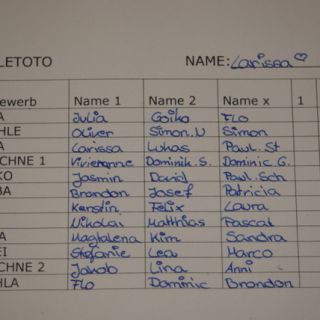 LETOTO NAME: Larissa
ewerb Name 1 Name 2 Name x 1
A Julia Goiko FLO
HLE Oliver Simon.U Simon
A Larissa Lukas Paul.St
CHNE 1 Vivienne Dominik.S. Dominic G.
KO Jasmin David Paul.Sch
BA Brandon Josef Patricia
Kerstin Felix Laura
Nikolai Matthias Pascal
A Magdalena Kim Sandra
EI Stefanie Lea Marco
CHNE 2 Jakob Lina Anni
HLA FLO Dominic Brandon